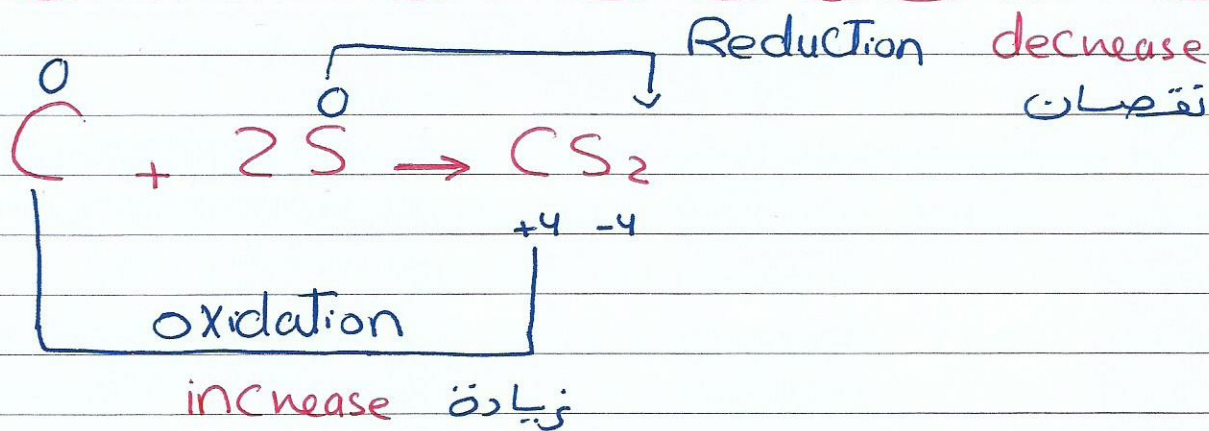 Reduction decrease
نقصان
0 0
C + 2S → CS₂
+4 -4
oxidation
increase زيادة